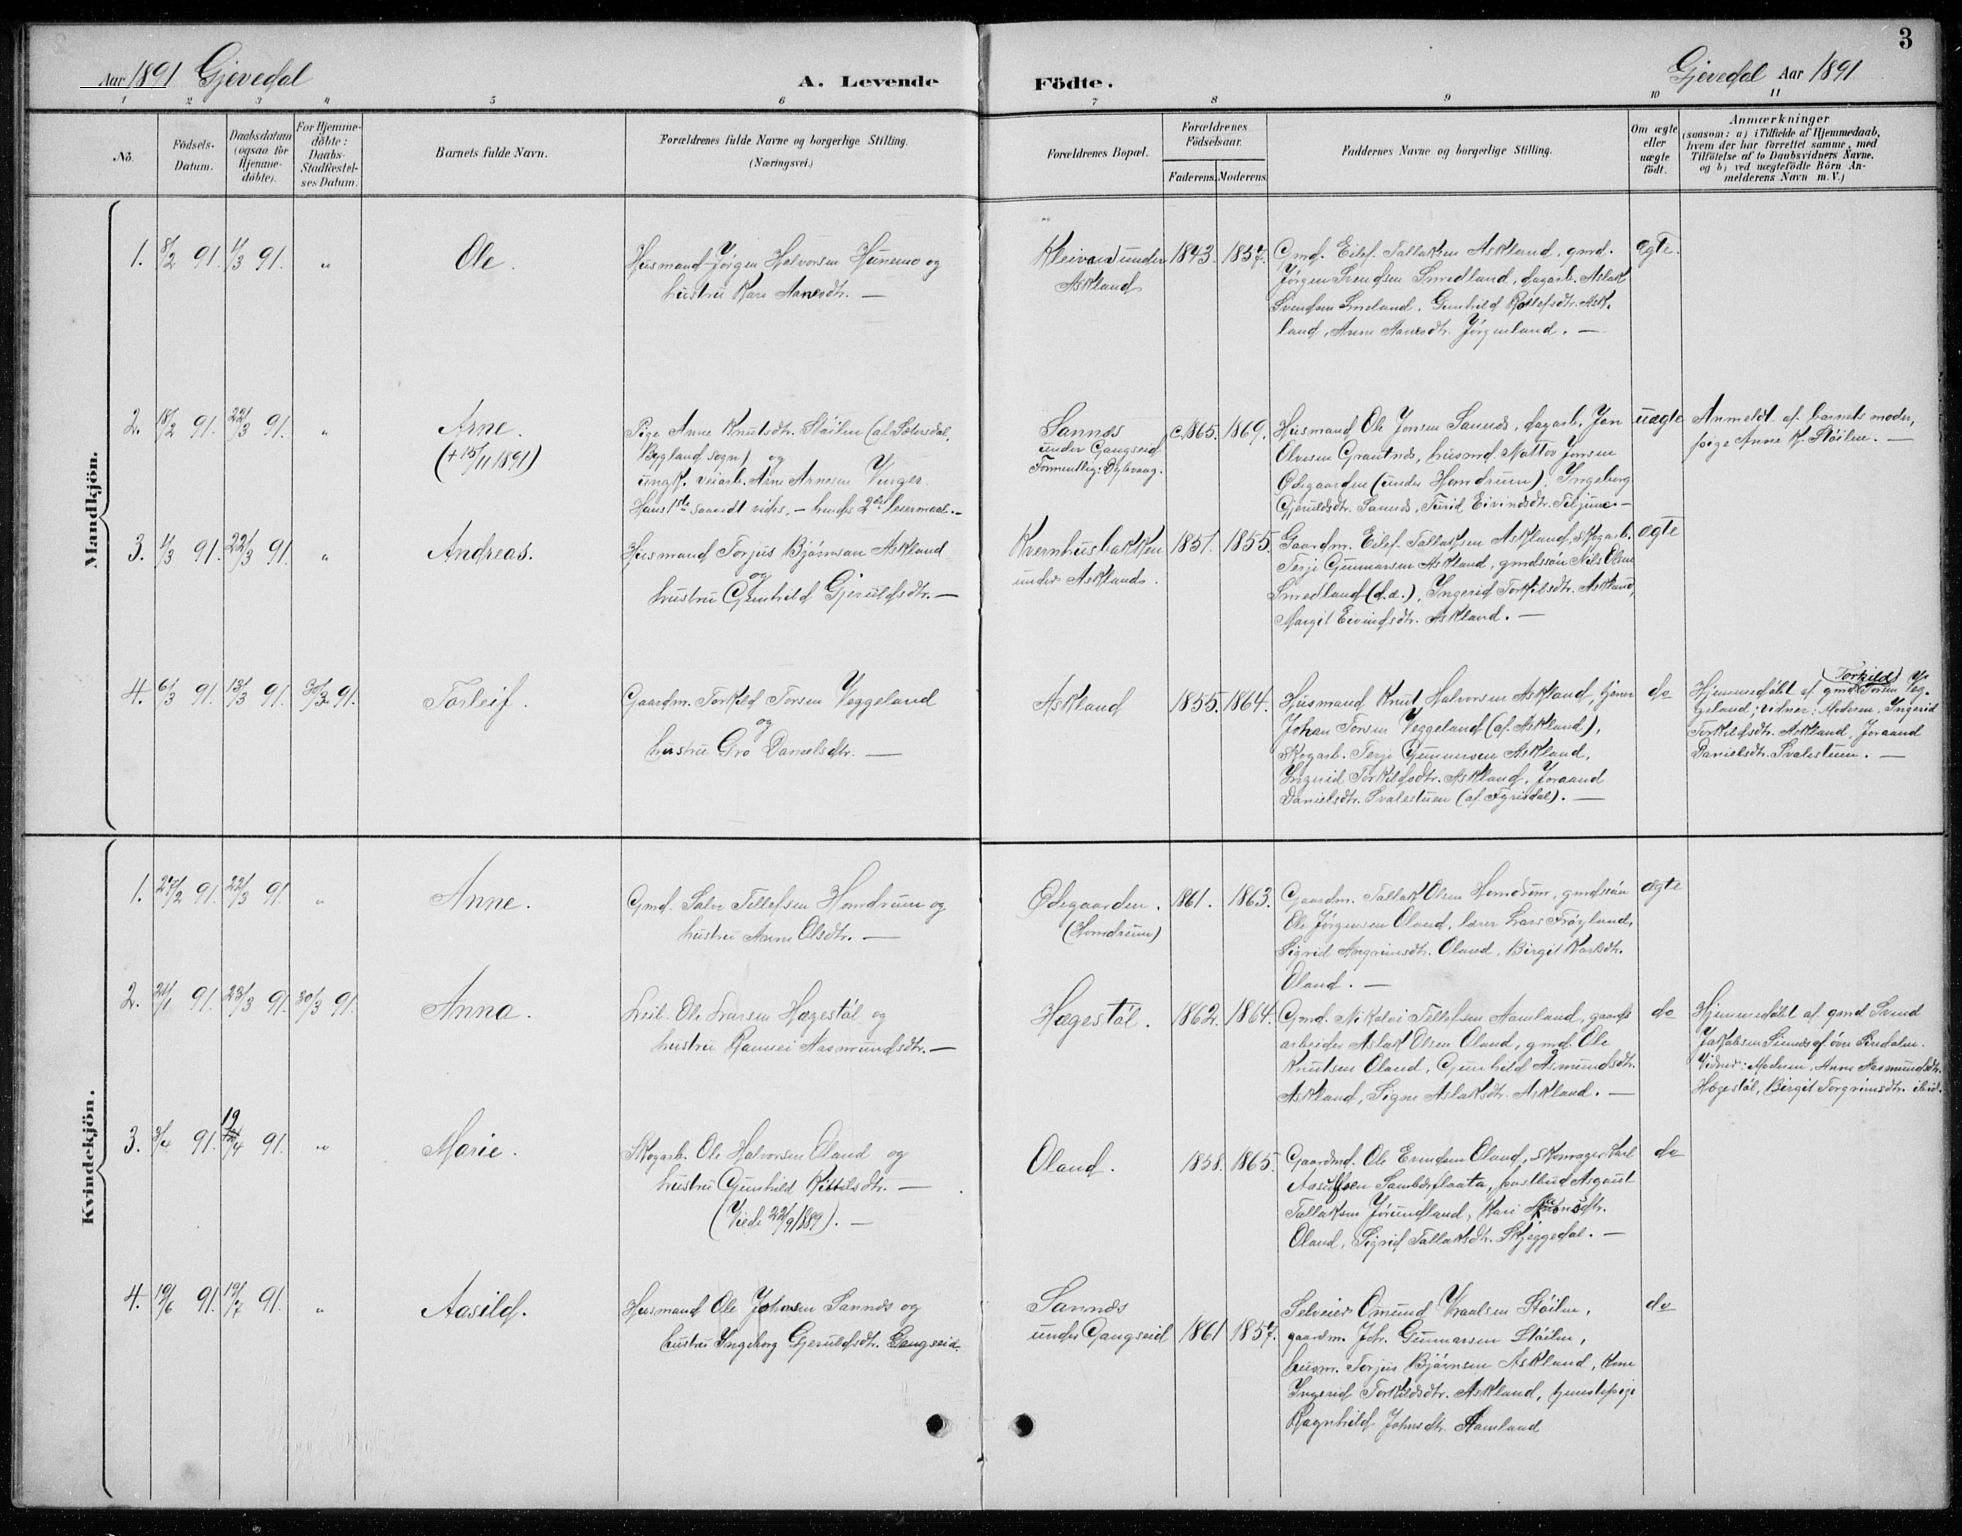 3
Aar 1891 Gjevedal
A. Levende
Födte.
Gjevedal Aar 1891
1 2 3 4 5 6 7 8 9 10 11
No.
Födsels-
Datum.
Daabsdatum
(ogsaa for
Hjemme-
döbte).
For Hjemme-
döbte:
Daabs-
Stadfæstel-
ses Datum.
Barnets fulde Navn.
Forældrenes fulde Navne og borgerlige Stilling.
(Næringsvei.)
Forældrenes Bopæl.
Forældrenes
Födselsaar.
Faderens. Moderens.
Faddernes Navne og borgerlige Stilling.
Om ægte
eller
uægte
födt.
Anmærkninger
(saasom: a) i Tilfælde af Hjemmedaab,
hvem der har forrettet samme, med
Tilföielse af to Daabsvidners Navne,
og b) ved uægtefödte Börn An-
melderens Navn m. V.)
Mandkjön.
1. 8/2 91. 1/3 91. " Ole.
Husmand Jørgen Halvorsen Hunemo og
hustru Kari Aanesdtr. —
Kleivane under
Askland
1843. 1857.
Gmd. Eilef Tallaksen Askland, gmd.
Jørgen Svendsen Smedland, dagarb. Aslak
Svendsen Smeland, Gunhild Rollefsdtr. Ask-
land, Anne Aanesdtr. Jørgenland. —
ægte.
2. 18/2 91. 22/3 91. " Arne.
(+ 15/11 1891)
Pige Anne Knutsdtr. Stöilen (af Sætersdal,
Bygland sogn) og
ungk. veiarb. Arne Arnesen Vinger.
Hans 1ste saavidt vides, — hendes 2det leiermaal. —
Sannes
under Gangseid
Formentlig: Dybvaag.
c. 1865. 1869.
Husmand Ole Jonsen Sannes, dagarb. Jon
Olvesen Grantnes, husmd. Mattov Jonsen
Ødegaarden (under Homdrum), Ingeborg
Gjeruldsdtr. Sannes, Turid Eivindsdtr. —
uægte
Anmeldt af barnets moder,
pige Anne K. Stöilen. —
3. 1/3 91. 22/3 91. " Andreas.
Husmand Torjus Bjørnsen Askland
og
hustru Gunhild Gjeruldsdtr. —
Kvernhusbakken
under Askland.
1851. 1855.
Gaardm. Eilef Tallaksen Askland, skogarb.
Terje Gunnarsen Askland, gmdssön Nils Olsen
Smedland (d.æ.), Ingerid Torkilsdtr. Askland,
Margit Eivindsdtr. Askland. —
ægte
4. 6/3 91. 13/3 91. 30/3 91. Torleif.
Gaardm. Torkild Torsen Veggeland
og
hustru Gro Danielsdtr. —
Askland
1855. 1864.
Husmand Knut Halvorsen Askland, tjener
Johan Torsen Veggeland (af Askland),
Skogarb. Terje Gunnersen Askland,
Ingerid Torkildsdtr. Askland, Joraand
Danielsdtr. Svalestuen (af Fyrisdal). —
do
(Torkild)
Hjemmedöbt af gmd Torsen Veg-
geland; vidner: Moderen, Ingerid
Torkildsdtr. Askland, Joraand
Danielsdtr. Svalestuen. —
Kvindekjön.
1. 27/2 91. 22/3 91. " Anne.
Gmd. Salve Tellefsen Homdrum og
hustru Anne Olsdtr. —
Ødegaarden.
(Homdrum)
1861. 1863.
Gaardm. Tallak Olsen Homdrum, gmdssön
Ole Jørgensen Oland, lærer Lars Fröyland,
Sigrid Angrimsdtr. Oland, Birgit Karlsdtr.
Oland. —
ægte
2. 24/1 91. 23/3 91. 30/3 91. Anna.
Leil. Ole Larsen Hægestöl og
hustru Rannei Aasmundsdtr. —
Hægestöl.
1862. 1864.
Gmd. Nikolai Tellefsen Aamland, gaards
arbeider Aslak Olsen Oland, gmd. Ole
Knutsen Oland, Gunhild Asmundsdtr.
Askland, Signe Aslaksdtr. Askland. —
do
Hjemmedöbt af gmd Svend
Jakobsen
Vidner: Moderen, Anne Aasmundsdtr.
Hægestöl, Birgit Torgrimsdtr. ibid.
3. 3/4 91. 19/4 91. " Marie.
Skogarb. Ole Halvorsen Oland og
hustru Gunhild Kittilsdtr. —
(Viede 22/9 1889). —
Oland.
1858. 1865.
Gaardmd. Ole Evindsen Oland, skomager Karl
Aasulfsen, postbud Asgaut
Tallaksen Jörundland, Kari
Oland, Sigrid Tallaksdtr. Skjeggedal. —
do
4. 19/6 91. 19/7 91. " Aasild.
Husmand Ole Johnsen Sannes og
hustru Ingeborg Gjeruldsdtr. Gangseid.
Sannes
under Gangseid
1861 1857.
Selveier Omund Vraalsen Stöilen,
gaardm. Joh. Gunnarsen Stöilen,
husm. Torjus Bjørnsen Askland, kone
Ingerid Torkildsdtr. Askland, tjenestepige
Ragnhild Johnsdtr. Aamland
do